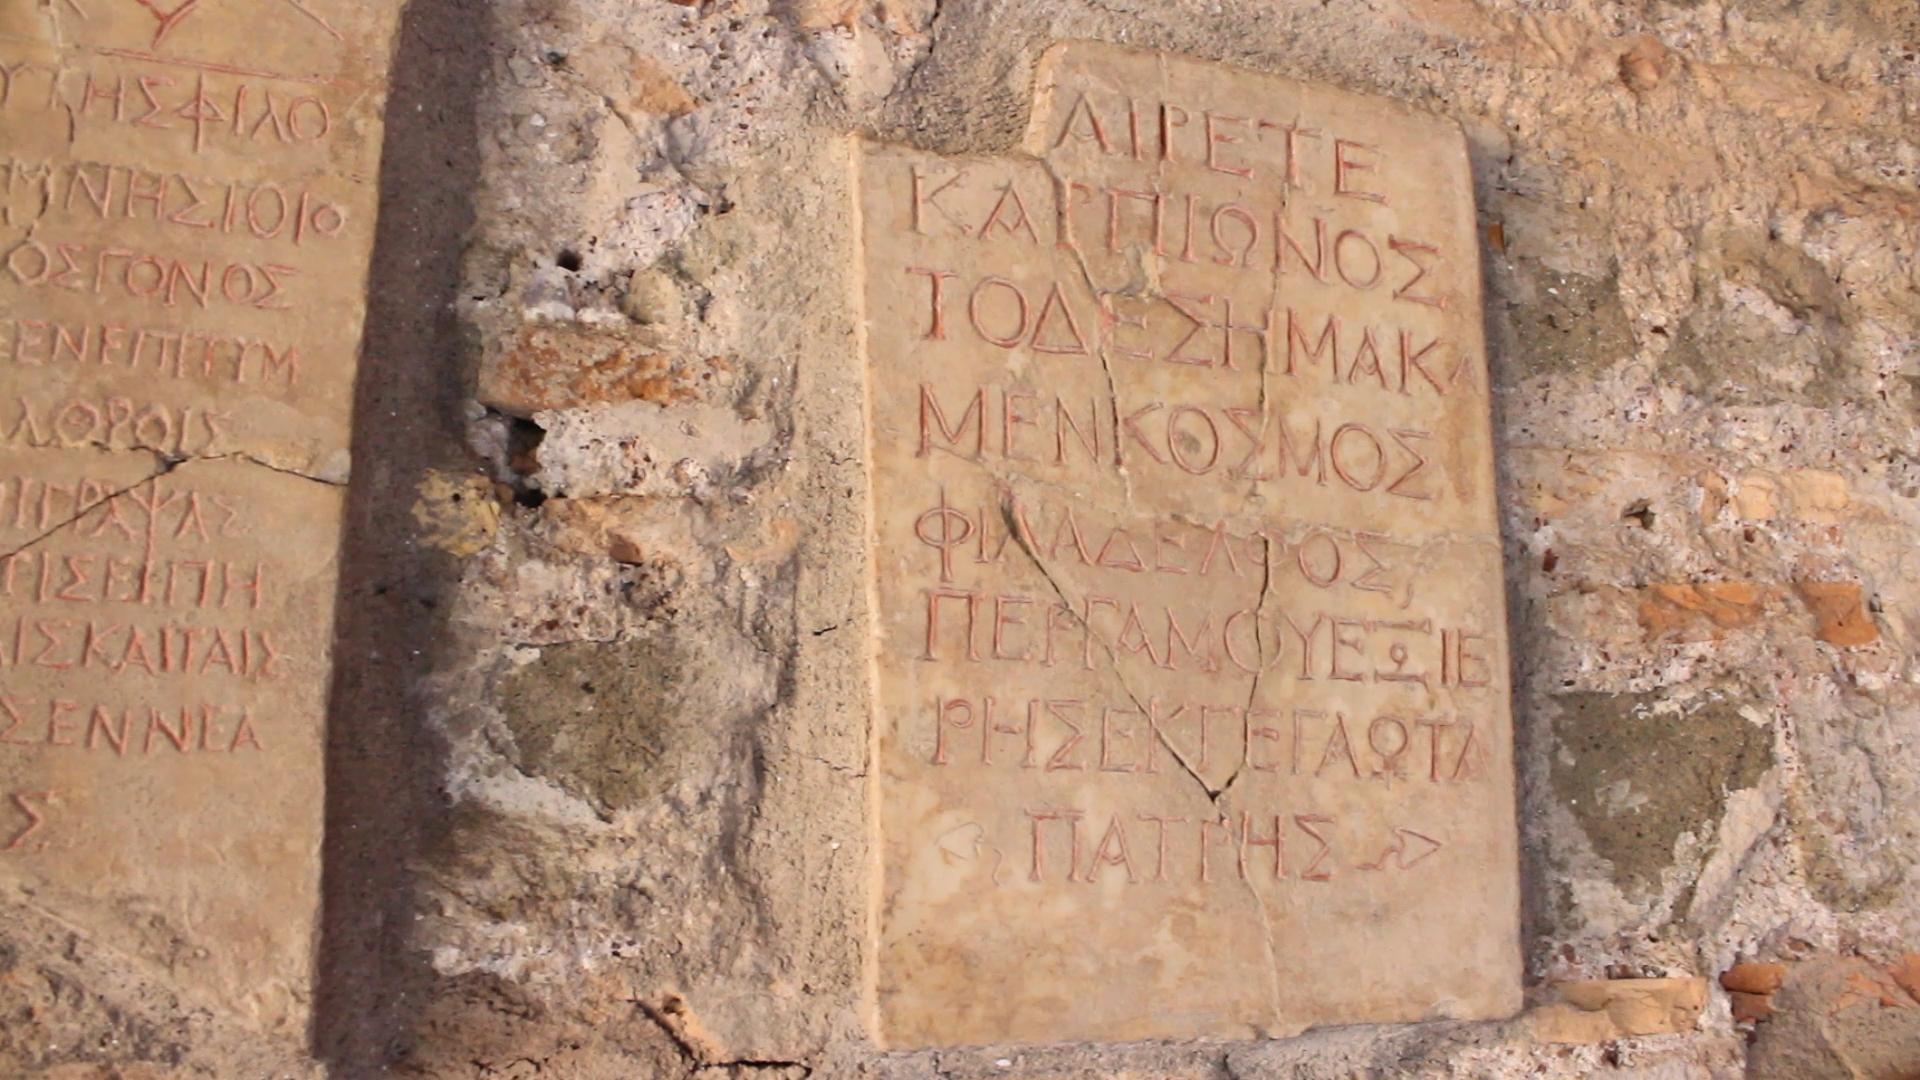 ΗΣΦΙΛΟ
ΜΝΗΣΙΟΙΟ
ΟΣΓΟΝΟΣ
ΕΝΕΠΙΤΥΜ
ΛΟΘΡΟΙΣ
ΙΓΡΑΨΑΣ
ΤΙΣΕΙΠΗ
ΙΣΚΑΙΤΑΙΣ
ΣΕΝΝΕΑ
Σ
ΑΙΡΕΤΕ
ΚΑΡΠΙΩΝΟΣ
ΤΟΔΕΣΗΜΑΚΑ
ΜΕΝΚΟΣΜΟΣ
ΦΙΛΑΔΕΛΦΟΣ
ΠΕΡΓΑΜΟΥΕΞΙΕ
ΡΗΣΕΚΓΕΓΑΩΤΑ
ΠΑΤΡΗΣ